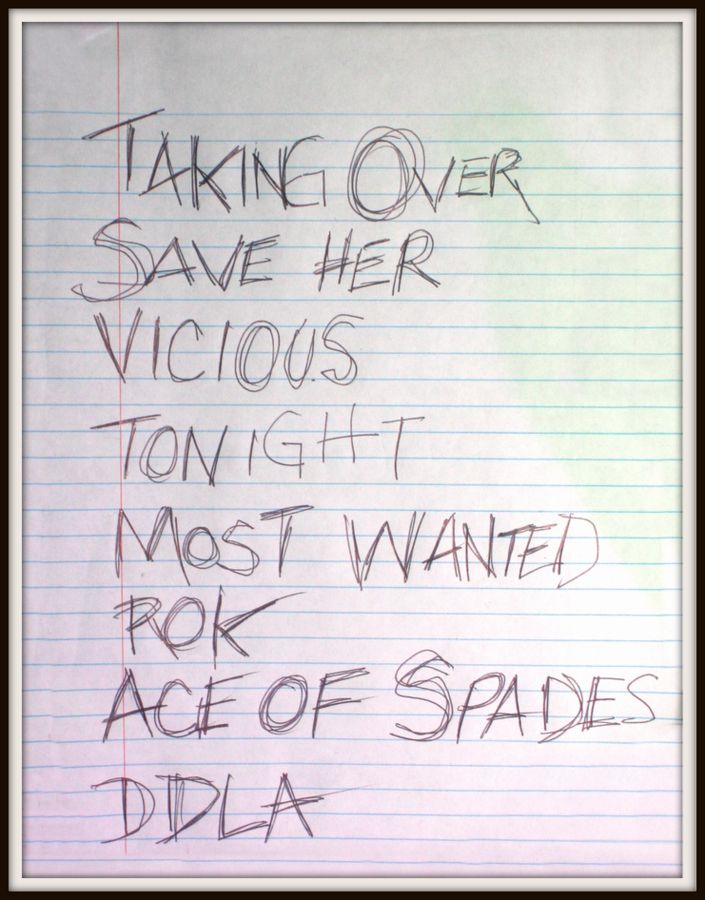 TAKING OVER
SAVE HER
VICIOUS
TONIGHT
MOST WANTED
ROK
ACE OF SPADES
DDLA